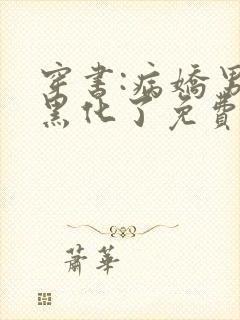 穿書:病嬌男
黑化了免費
蕭華